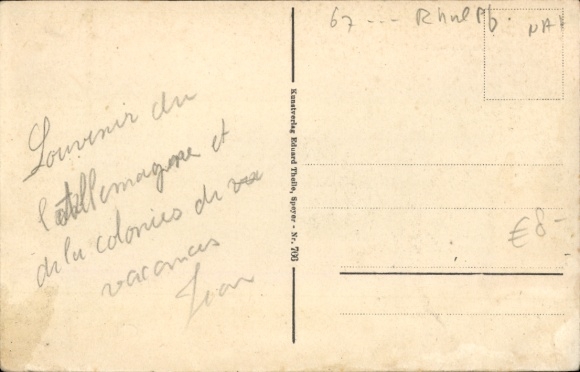 67 --- RhnlPb.
NA
Souvenir du
l'Allemagne et
de la colonies de
vacances
Jean
Kunstverlag Eduard Theile, Speyer - Nr. 703
€ 8-